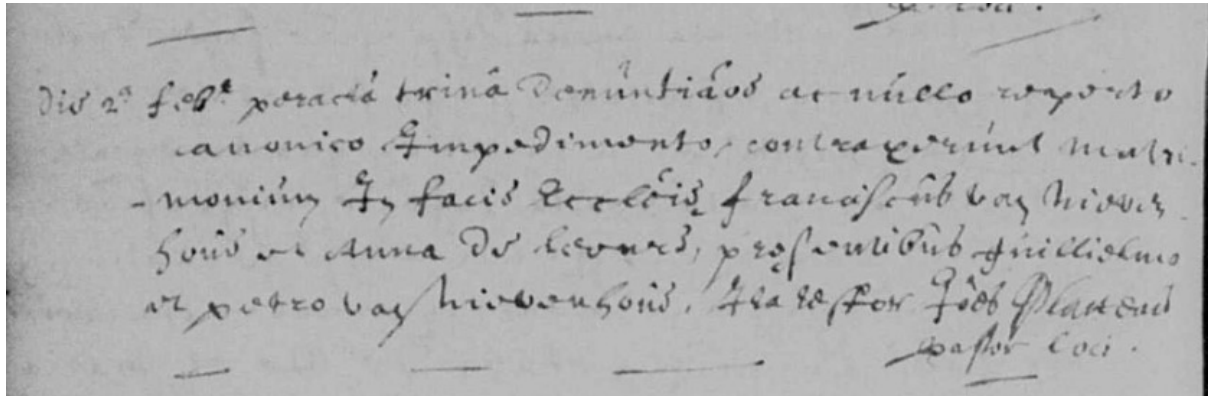 p. loci.
die 2ª febr peracta trinâ denuntiãoe ac nullo reperto
canonico Impedimento, contraxerunt matri-
-monium In facie Eccleię franciscus van Nieven-
hove et Anna de , pręsentibus guillielmo
et petro van Nievenhove. Ita testor Joes
pastor loci.